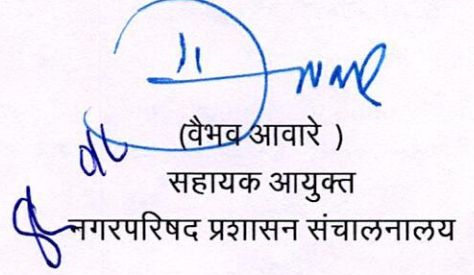 (वैभव आवारे )
सहायक आयुक्त
नगरपरिषद प्रशासन संचालनालय